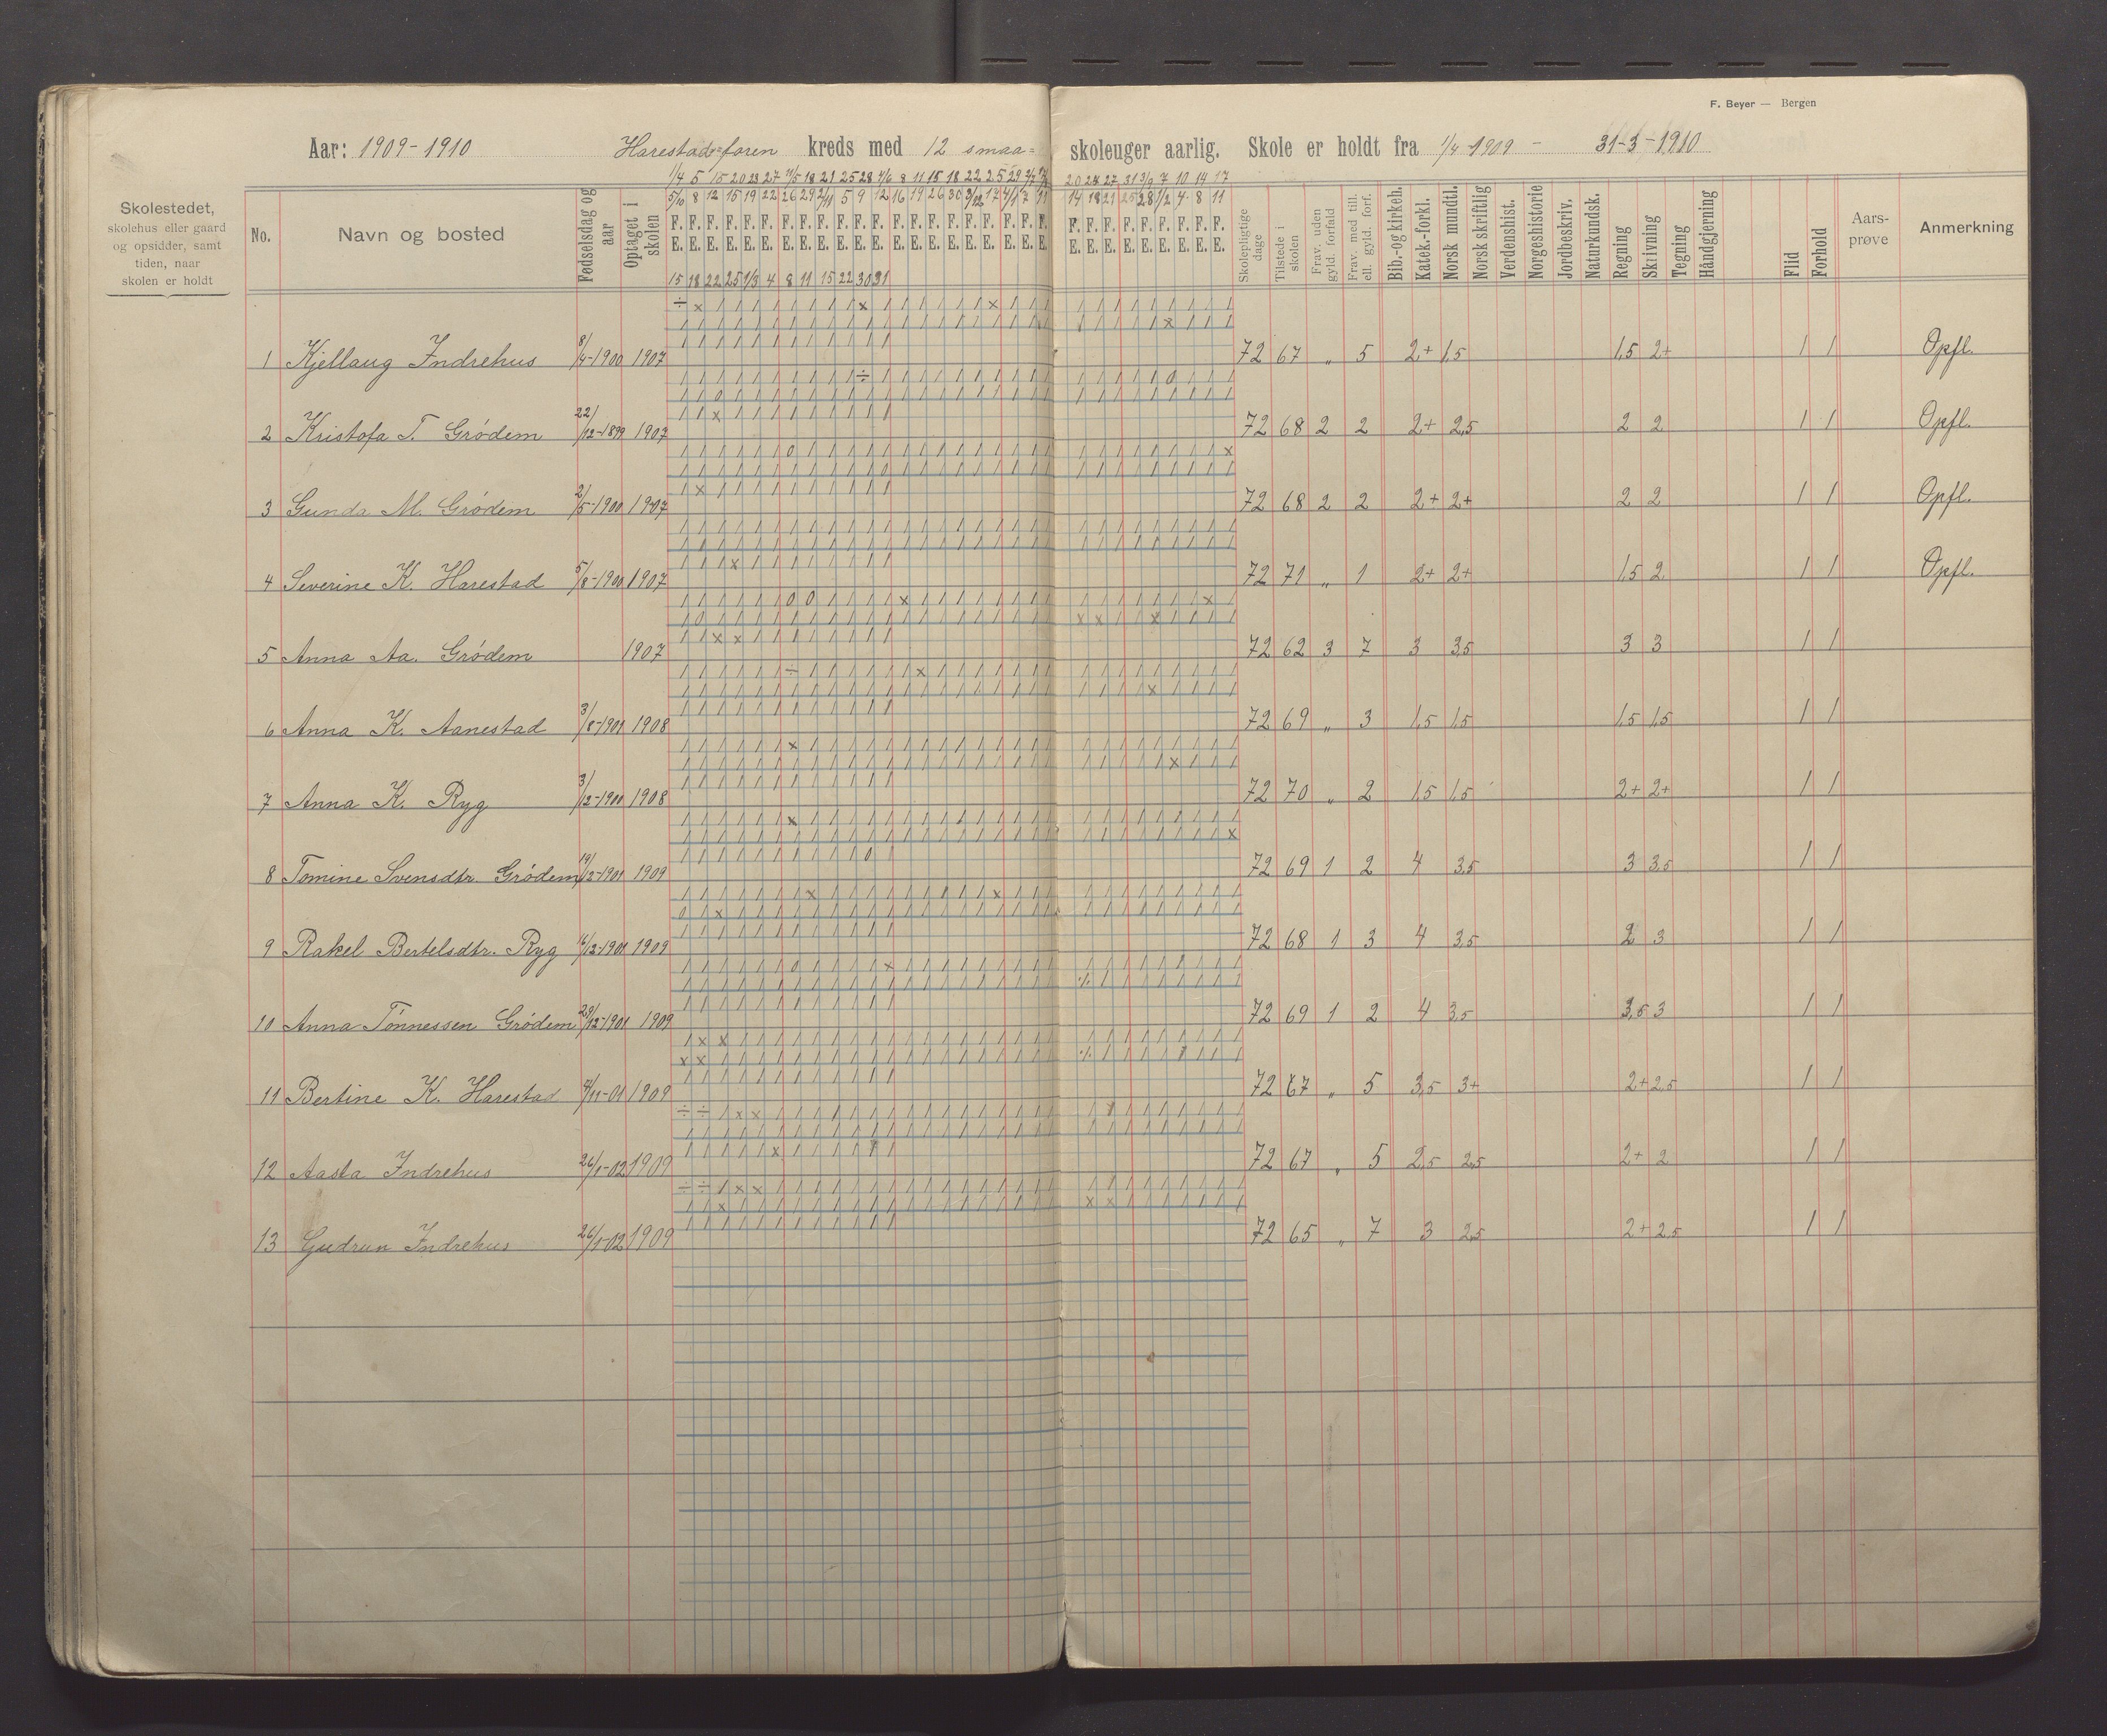 F. Beyer — Bergen
Aar: 1909-1910 Harestad-foren kreds med 12 smaa= skoleuger aarlig. Skole er holdt fra 1/4 1909 - 31-3-1910
Skolestedet,
skolehus eller gaard
og opsidder, samt
tiden, naar
skolen er holdt
No. Navn og bosted Fødselsdag og aar Optaget i skolen Skolepligtige dage Tilstede i skolen Frav. uden gyld. forfald Frav. med till. ell. gyld. forf. Bib.- og kirkeh. Katek.-forkl. Norsk mundtl. Norsk skriftlig Verdenshist. Norgeshistorie Jordbeskriv. Naturkundsk. Regning Skrivning Tegning Håndgjerning Flid Forhold Aars-prøve Anmerkning
1/4 5 15 20 23 27 11/5 18 21 25 28 4/6 8 11 15 18 22 25 29 20 24 27 31 3/9 7 10 14 17
5/10 8 12 15 19 22 26 29 2/11 5 9 12 16 19 26 30 3/12 17 4/1 7 11 14 18 21 25 28 1/2 4 8 11
F. F. F. F. F. F. F. F. F. F. F. F. F. F. F. F. F. F. F. F. F. F. F. F. F. F. F. F. F. F.
E. E. E. E. E. E. E. E. E. E. E. E. E. E. E. E. E. E. E. E. E. E. E. E. E. E. E. E. E. E.
15 18 22 25 1/3 4 8 11 15 22 30 31
1 Kjellaug Indrehus 8/4-1900 1907 72 67 „ 5 2+ 1,5 1,5 2+ 1 1 Opfl.
2 Kristofa T. Grødem 22/12-1899 1907 72 68 2 2 2+ 2,5 2 2 1 1 Opfl.
3 Gunda M. Grødem 2/5-1900 1907 72 68 2 2 2+ 2+ 2 2 1 1 Opfl.
4 Severine K. Harestad 5/8-1900 1907 72 71 „ 1 2+ 2+ 1,5 2 1 1 Opfl.
5 Anna Aa. Grødem 1907 72 62 3 7 3 3,5 3 3 1 1
6 Anna K. Aanestad 3/8-1901 1908 72 69 „ 3 1,5 1,5 1,5 1,5 1 1
7 Anna K. Ryg 3/12-1900 1908 72 70 „ 2 1,5 1,5 2+ 2+ 1 1
8 Tomine Svensdtr. Grødem 19/2-1901 1909 72 69 1 2 4 3,5 3 3,5 1 1
9 Rakel Bertelsdtr. Ryg 16/12-1901 1909 72 68 1 3 4 3,5 2 3 1 1
10 Anna Tønnessen Grødem 29/12-1901 1909 72 69 1 2 4 3,5 3,5 3 1 1
11 Bertine K. Harestad 4/11-01 1909 72 67 „ 5 3,5 3+ 2+ 2,5 1 1
12 Aasta Indrehus 26/1-02 1909 72 67 „ 5 2,5 2,5 2+ 2 1 1
13 Gudrun Indrehus 26/1-02 1909 72 65 „ 7 3 2,5 2+ 2,5 1 1